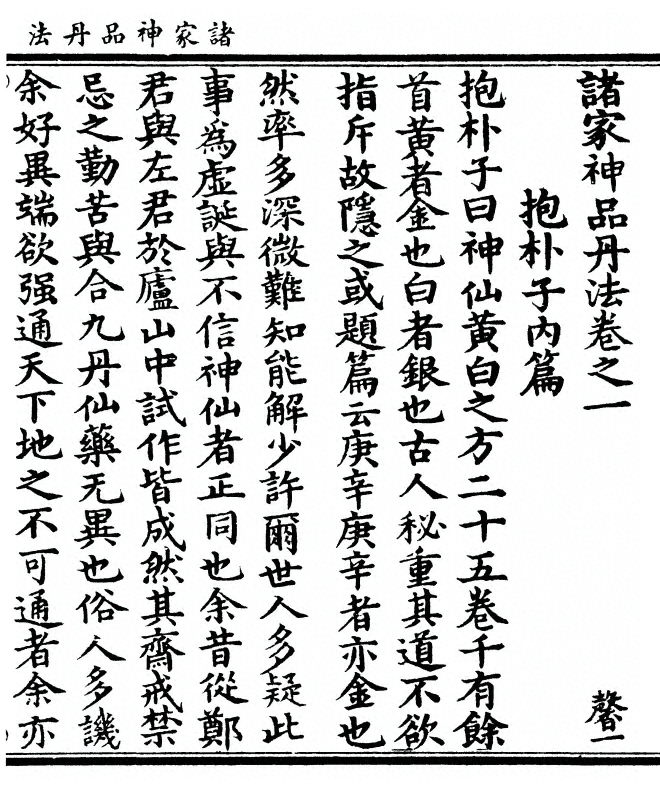 諸家神品丹法
諸家神品丹法卷之一
馨一
抱朴子内篇
抱朴子曰神仙黄白之方二十五卷千有餘
首黄者金也白者銀也古人秘重其道不欲
指斥故隱之或題篇云庚辛庚辛者亦金也
然率多深微難知能解少許爾世人多疑此
事為虛誕與不信神仙者正同也余昔從鄭
君與左君於廬山中試作皆成然其齋戒禁
忌之勤苦與合九丹仙藥无異也俗人多譏
余好異端欲强通天下地之不可通者余亦